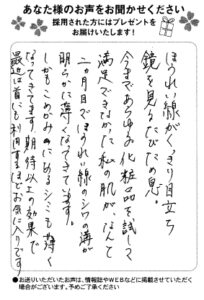 あなた様のお声をお聞かせください
採用された方にはプレゼントを
お届けいたします!
ほうれい線がくっきり目立ち
鏡を見るたびため息。
今まであらゆる化粧品を試して
満足できなかった私の肌が、なんと
二ヵ月目でほうれい線のシワの溝が
明らかに薄くなってきています。
しかもこめかみのにあるシミも薄く
なってきてます。期待以上の効果で
最近は首にも利用するほどお気に入りです
●お送りいただいたお声は、情報誌やWEBなどに掲載させていただく
場合がございます。予めご了承ください